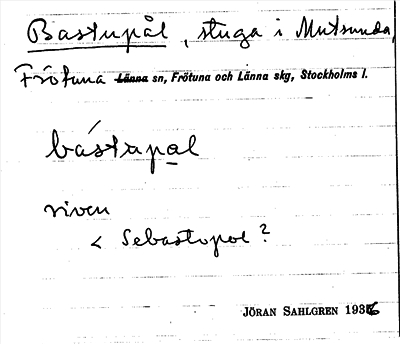 Bastupål, stuga i Mutsunda,
Frötuna Länna sn, Frötuna och Länna skg, Stockholms l.
bástupa̲l
riven
< Sebastopol?
JÖRAN SAHLGREN 1936